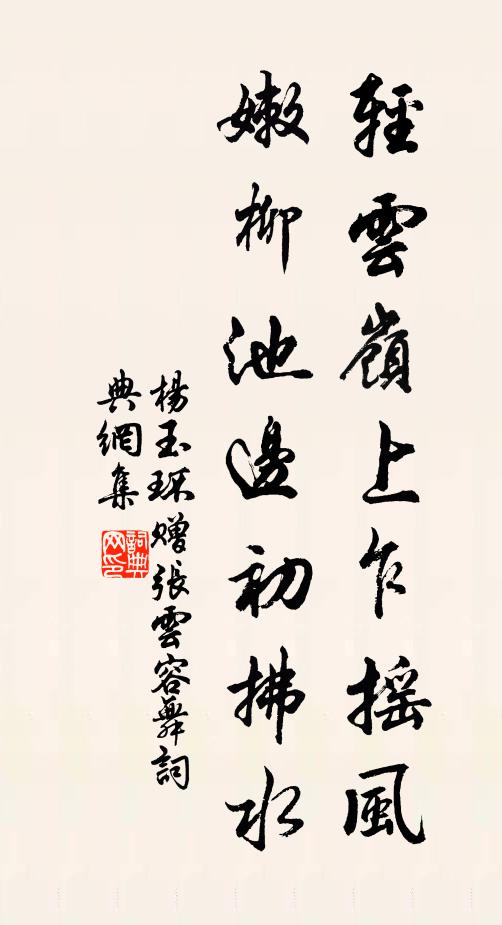 輕雲嶺上乍摇風
嫩柳池邊初拂水
楊玉环赠張雲容舞詞
典網集
詞典
网印